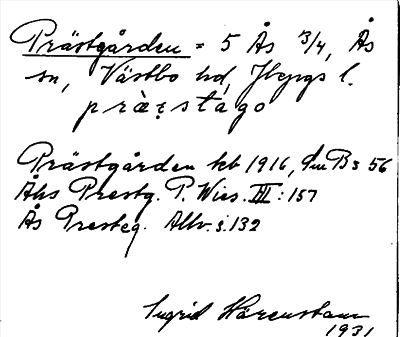 Prästgården = 5 Ås 3/4, Ås
sn, Västbo hd, Jbgs l.
præ̀stágo
Prästgården kb 1916, Bs 56
Åhs Prestg. P. Wies. III : 157
Ås Presteg. Allv. s. 132
Ingrid Härenstam
1931